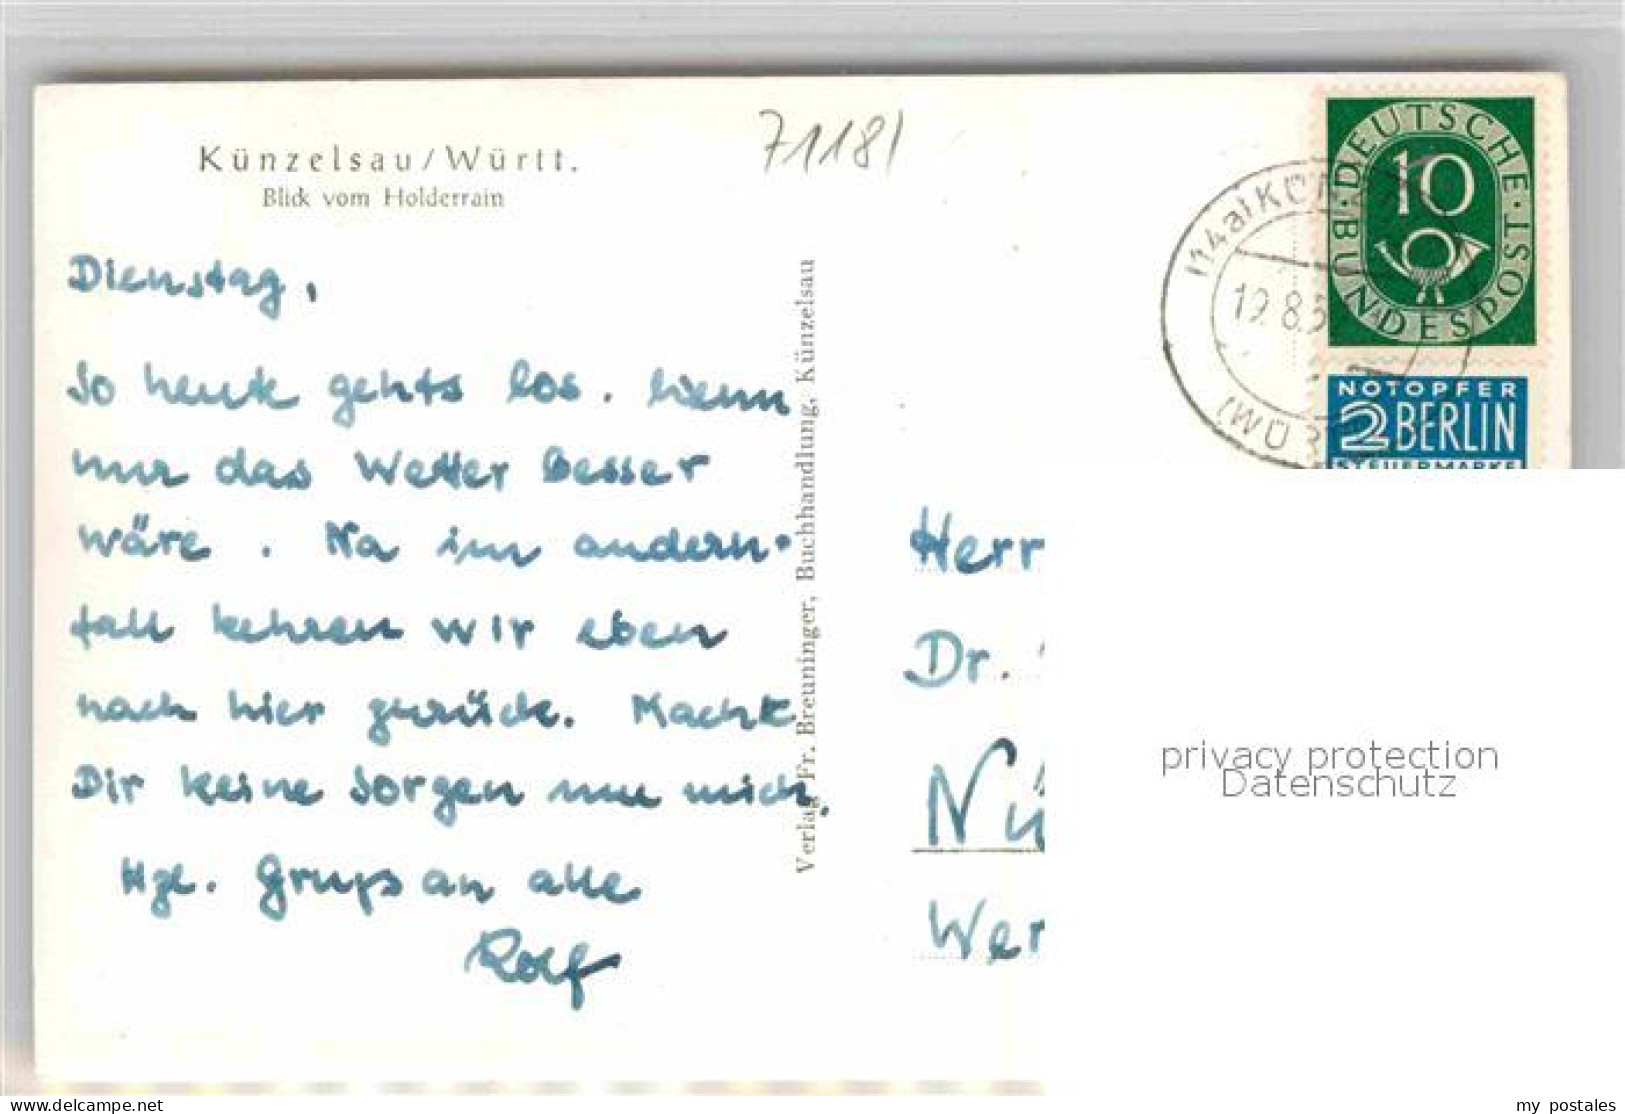 Künzelsau/Württ.
Blick vom Holderrain
71181
Dienstag,
So heute gehts los. Wenn
nur das Wetter besser
wäre. Na im andern-
fall kehren wir eben
nach hier zurück. Macht
Dir keine Sorgen um mich.
Hzl. Gruß an alle
Rolf
Verlag Fr. Breuninger, Buchhandlung, Künzelsau
(14a) KÜN
19.8.5
(WÜR
DEUTSCHE BUNDESPOST
10
NOTOPFER
2 BERLIN
STEUERMARKE
Herr
Dr.
Nü
Wer
privacy protection
Datenschutz
www.delcampe.net
my_postales